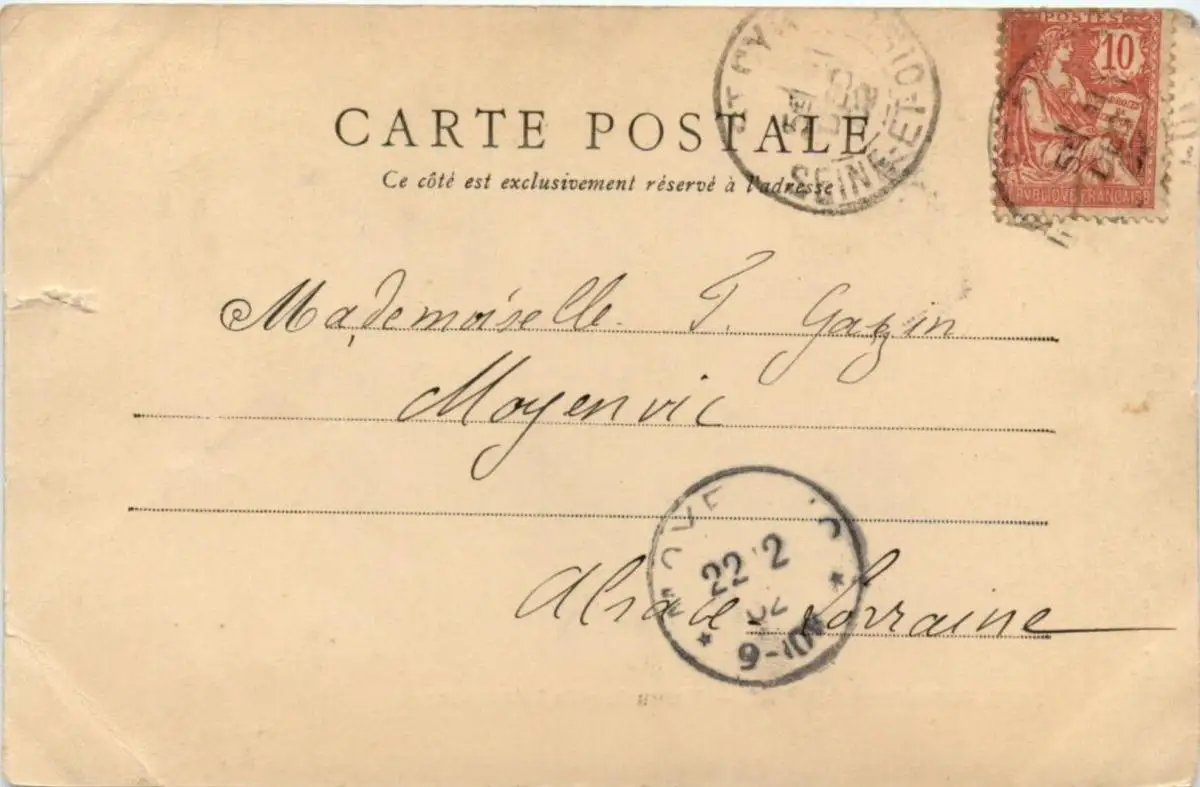 POSTES
10
RÉPUBLIQUE FRANÇAISE
CARTE POSTALE
Ce côté est exclusivement réservé à l'adresse
SEINE-ET-OISE
Mademoiselle T. Gazin
Moyenvic
22 2
02
9-10V
Alsace-Lorraine